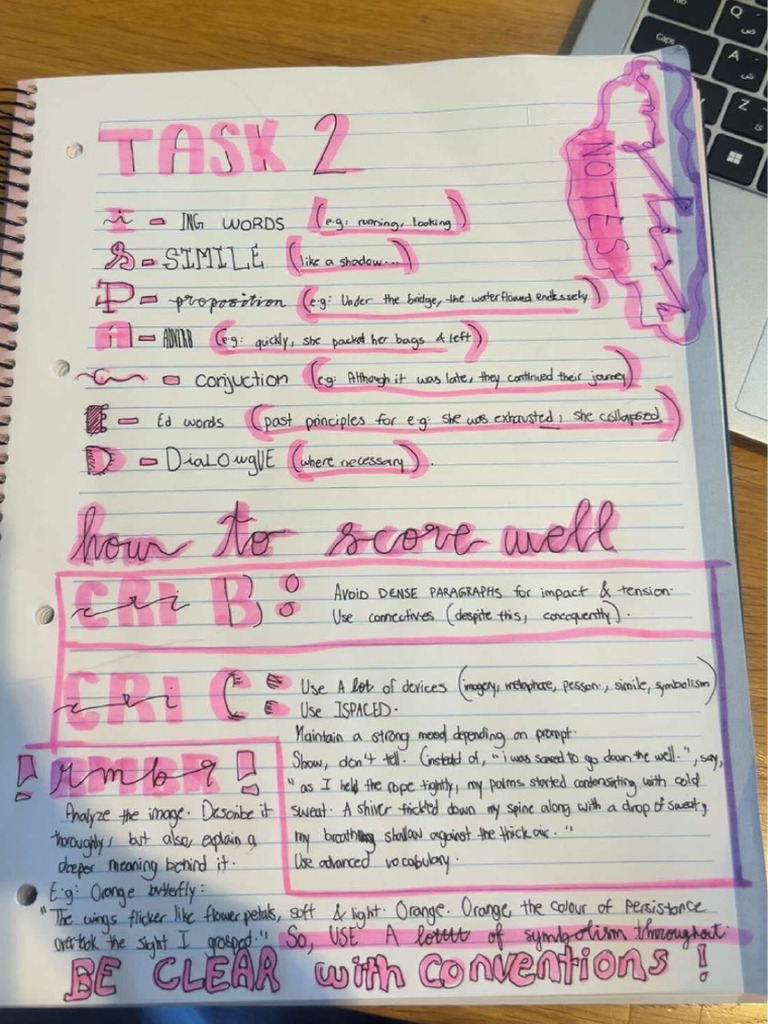 TASK 2
NOTES
i - ING WORDS (e.g: running, looking)
S - SIMILE (like a shadow...)
P - proposition (e.g: Under the bridge, the water flowed endlessely)
A - ADVERB (e.g: quickly, she packet her bags & left)
C - conjuction (eg: Although it was late, they continued their journey)
E - Ed words (past principles for e.g: she was exhausted, she collapsed)
D - DiaLOwgUE (where necessary).
how to score well
CRI B: AVOID DENSE PARAGRAPHS for impact & tension.
Use connectives (despite this, concequently).
CRI C: Use A lot of devices (imagery, metaphare, person., simile, symbolism)
Use ISPACED.
Maintain a strong mood depending on prompt.
Show, don't tell. (instead of, "i was scared to go down the well.", say,
"as I held the rope tightly, my palms started condensating with cold
sweat. A shiver trickled down my spine along with a drop of sweat,
my breathing shallow against the thick air."
Use advanced vocabulary.
! rmbr !
Analyze the image. Describe it
thoroughly, but also, explain a
deeper meaning behind it.
E.g: Orange butterfly:
"The wings flicker like flower petals, soft & light. Orange. Orange, the colour of persistance
overtook the sight I grasped." So, USE A lottt of symbolism throughout.
BE CLEAR with conventions!
Caps
Q
A
Z